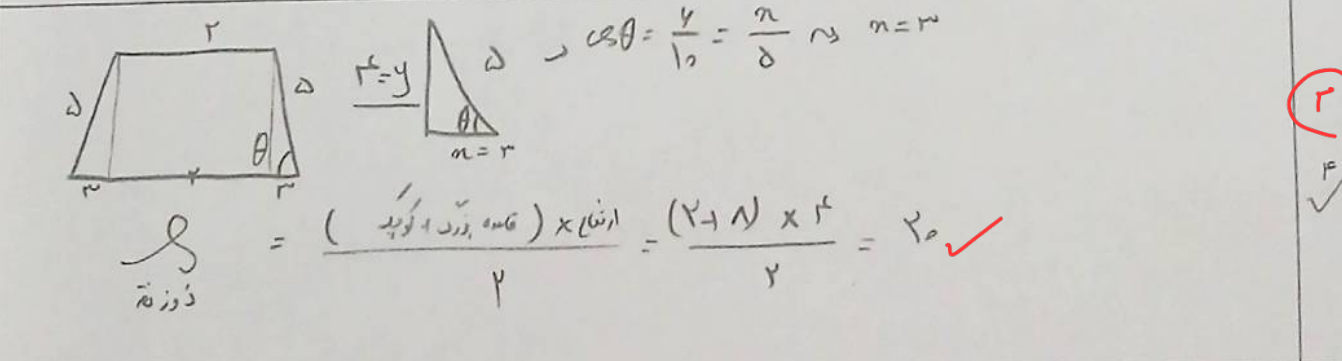 ۲
۵ ۵ θ ۳ ۲ ۳
۴=y ۵ θ x=۳
cosθ = ۶/۱۰ = x/۵ ⇝ x=۳
S ذوزنقه = (قاعده بزرگ + کوچک) × ارتفاع / ۲ = (۲+۸) × ۴ / ۲ = ۲۰ ✓
۲
۴ ✓